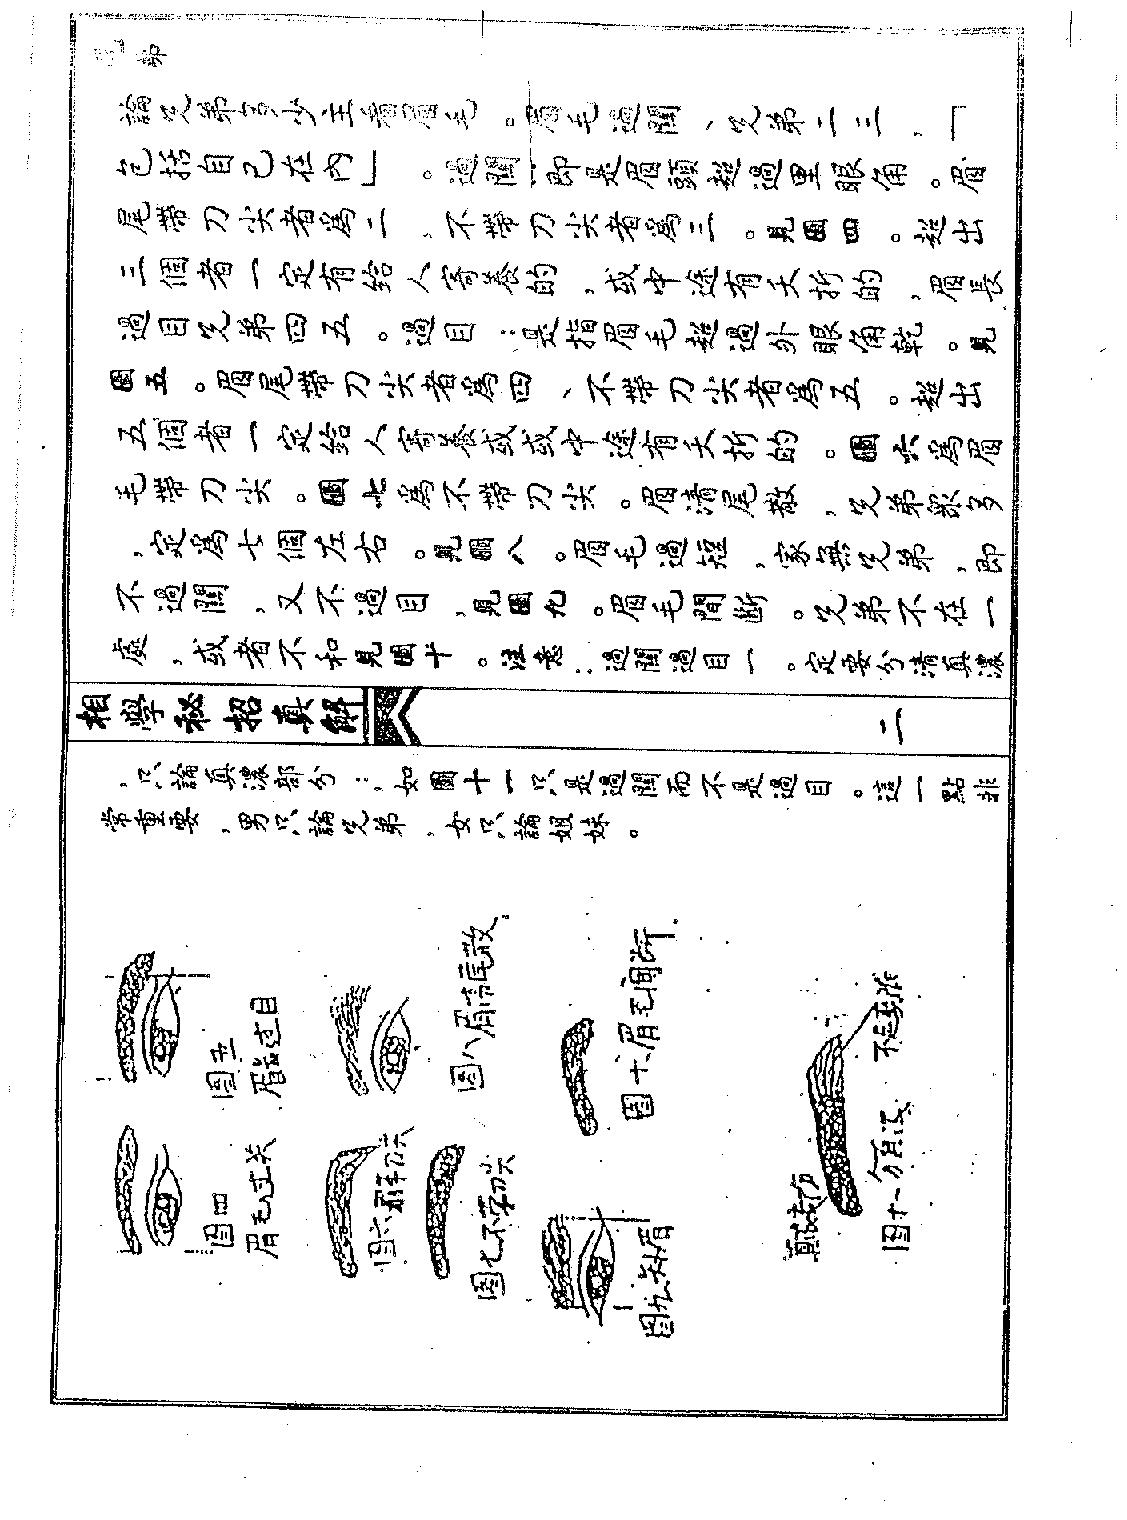 兄弟
論兄弟多少主看眉毛。眉毛過關、兄弟二三,「
包括自己在內」。過關:即是眉頭超過里眼角。眉
尾帶刀尖者為二,不帶刀尖者為三。見圖四。超出
三個者一定有給人寄養的,或中途有夭折的,眉長
過目兄弟四五。過目:是指眉毛超過外眼角範。見
圖五。眉尾帶刀尖者為四、不帶刀尖者為五。超出
五個者一定給人寄養或或中途有夭折的。圖六為眉
毛帶刀尖。圖七為不帶刀尖。眉清尾散,兄弟眾多
,定為七個左右。見圖八。眉毛過短,家無兄弟,即
不過關,又不過目,見圖九。眉毛間斷。兄弟不在一
處,或者不和見圖十。注意:過關過目一。定要分清真濃
相學秘招真解
二
,只論真濃部分:,如圖十一只是過關而不是過目。這一點非
常重要,男只論兄弟,女只論姐妹。
图五
眉毛过目
图四
眉毛过关
图八眉清尾散
图六帶刀尖
图七不帶刀尖
图十眉毛间断
图九短眉
真濃部分
图十一